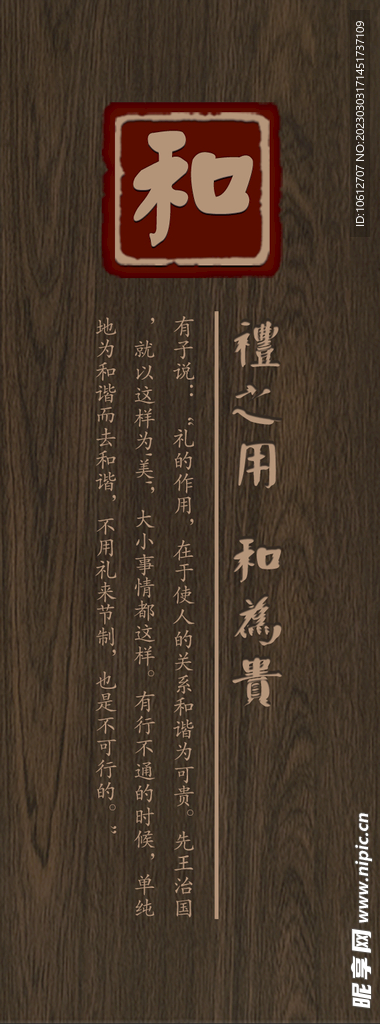 和
禮之用 和為貴
有子说：“礼的作用，在于使人的关系和谐为可贵。先王治国
，就以这样为‘美’，大小事情都这样。有行不通的时候，单纯
地为和谐而去和谐，不用礼来节制，也是不可行的。”
ID:10612707 NO:20230303171451737109
昵享网 www.nipic.cn